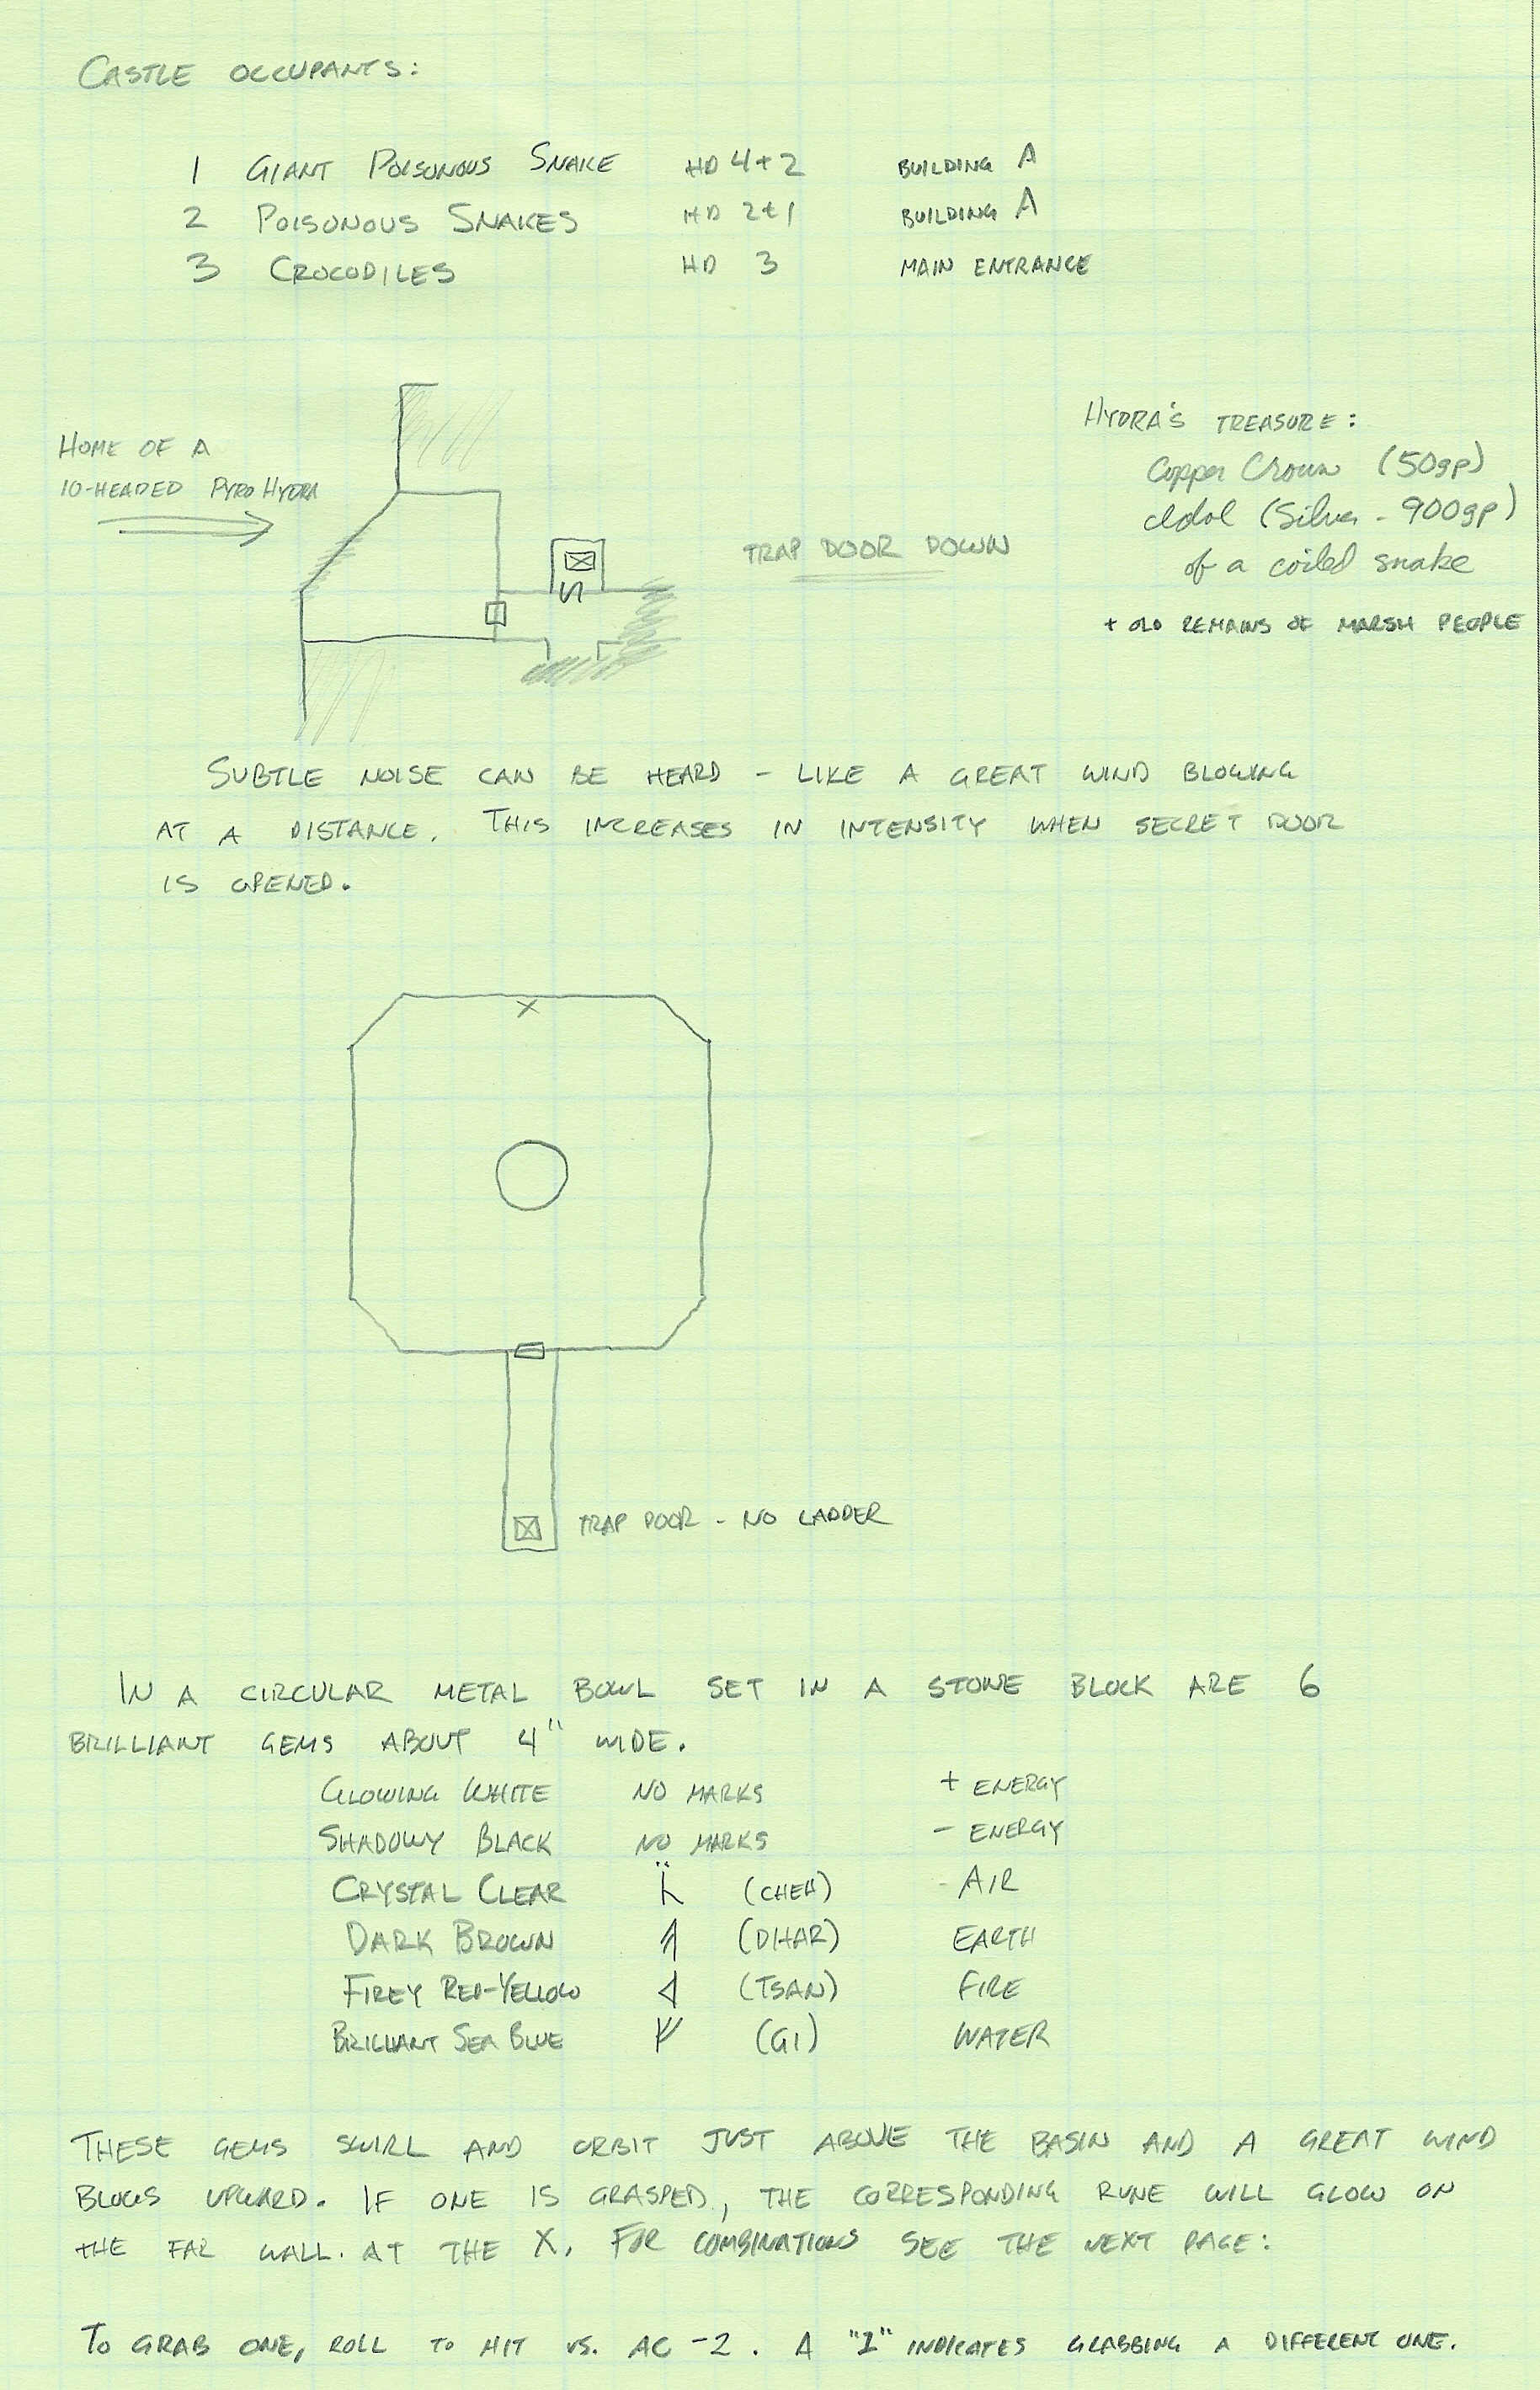 CASTLE OCCUPANTS:
1 GIANT POISONOUS SNAKE HD 4+2 BUILDING A
2 POISONOUS SNAKES HD 2+1 BUILDING A
3 CROCODILES HD 3 MAIN ENTRANCE
HOME OF A
10-HEADED PYRO HYDRA
S
TRAP DOOR DOWN
HYDRA'S TREASURE:
Copper Crown (50gp)
Idol (Silver - 900gp)
of a coiled snake
+ OLD REMAINS OF MARSH PEOPLE
SUBTLE NOISE CAN BE HEARD - LIKE A GREAT WIND BLOWING
AT A DISTANCE. THIS INCREASES IN INTENSITY WHEN SECRET DOOR
IS OPENED.
X
TRAP DOOR - NO LADDER
IN A CIRCULAR METAL BOWL SET IN A STONE BLOCK ARE 6
BRILLIANT GEMS ABOUT 4" WIDE.
GLOWING WHITE NO MARKS + ENERGY
SHADOWY BLACK NO MARKS - ENERGY
CRYSTAL CLEAR (CHEH) - AIR
DARK BROWN (DHAR) EARTH
FIREY RED-YELLOW (TSAN) FIRE
BRILLIANT SEA BLUE (GI) WATER
THESE GEMS SWIRL AND ORBIT JUST ABOVE THE BASIN AND A GREAT WIND
BLOWS UPWARD. IF ONE IS GRASPED, THE CORRESPONDING RUNE WILL GLOW ON
THE FAR WALL. AT THE X. FOR COMBINATIONS SEE THE NEXT PAGE:
TO GRAB ONE, ROLL TO HIT VS. AC -2. A "1" INDICATES GRABBING A DIFFERENT ONE.